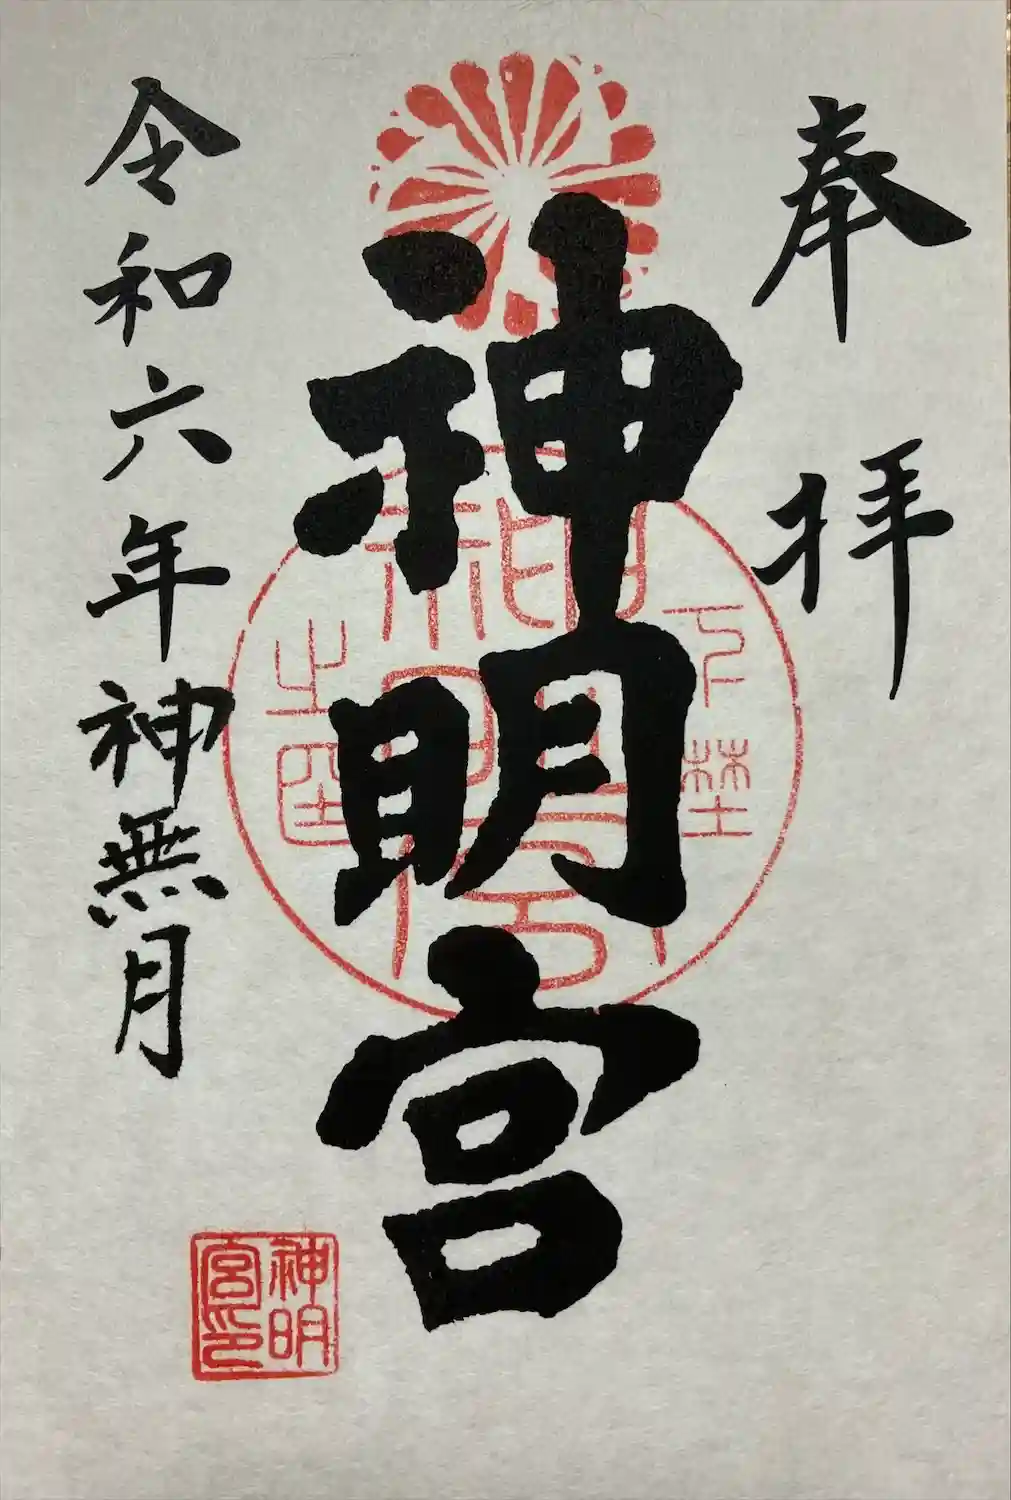 奉拝
神明宮
下埜
之印
令和六年神無月
神明
宮印